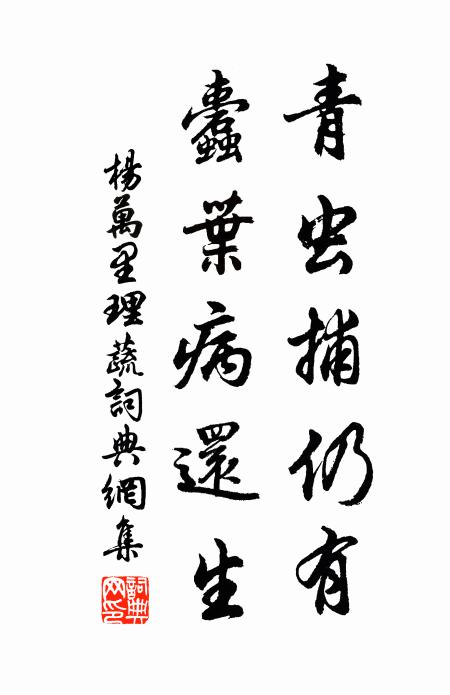 青虫捕仍有
蠹葉病還生
楊萬里理蔬詞典網集
詞典网印